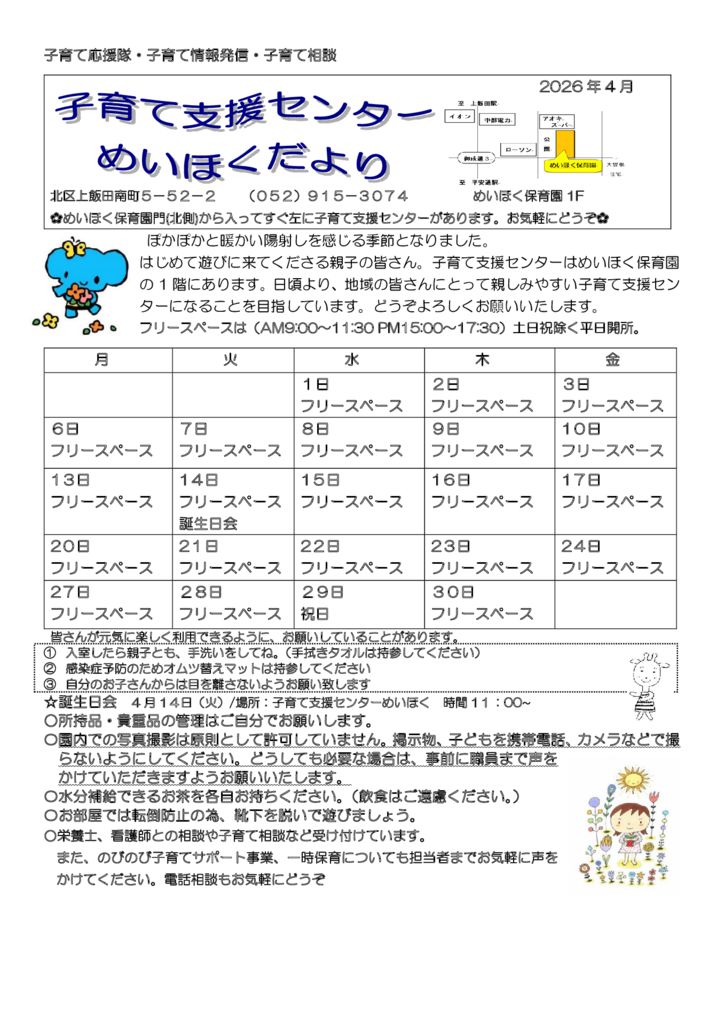 子育て応援隊・子育て情報発信・子育て相談
2026年4月
子育て支援センター
めいほくだより
至 上飯田駅
イオン
中部電力
アオキスーパー
ローソン
公園
御成通3
めいほく保育園
至 平安通駅
北区上飯田南町5-52-2 (052)915-3074 めいほく保育園1F
✿めいほく保育園門(北側)から入ってすぐ左に子育て支援センターがあります。お気軽にどうぞ✿
ぽかぽかと暖かい陽射しを感じる季節となりました。
はじめて遊びに来てくださる親子の皆さん。子育て支援センターはめいほく保育園
の1階にあります。日頃より、地域の皆さんにとって親しみやすい子育て支援セン
ターになることを目指しています。どうぞよろしくお願いいたします。
フリースペースは(AM9:00～11:30 PM15:00～17:30)土日祝除く平日開所。
月 火 水 木 金
1日 2日 3日
フリースペース フリースペース フリースペース
6日 7日 8日 9日 10日
フリースペース フリースペース フリースペース フリースペース フリースペース
13日 14日 15日 16日 17日
フリースペース フリースペース フリースペース フリースペース フリースペース
誕生日会
20日 21日 22日 23日 24日
フリースペース フリースペース フリースペース フリースペース フリースペース
27日 28日 29日 30日
フリースペース フリースペース 祝日 フリースペース
皆さんが元気に楽しく利用できるように、お願いしていることがあります。
① 入室したら親子とも、手洗いをしてね。(手拭きタオルは持参してください)
② 感染症予防のためオムツ替えマットは持参してください
③ 自分のお子さんからは目を離さないようお願い致します
☆誕生日会 4月14日(火)/場所:子育て支援センターめいほく 時間11:00~
○所持品・貴重品の管理はご自分でお願いします。
○園内での写真撮影は原則として許可していません。掲示物、子どもを携帯電話、カメラなどで撮
らないようにしてください。どうしても必要な場合は、事前に職員まで声を
かけていただきますようお願いいたします。
○水分補給できるお茶を各自お持ちください。(飲食はご遠慮ください。)
○お部屋では転倒防止の為、靴下を脱いで遊びましょう。
○栄養士、看護師との相談や子育て相談など受け付けています。
また、のびのび子育てサポート事業、一時保育についても担当者までお気軽に声を
かけてください。電話相談もお気軽にどうぞ